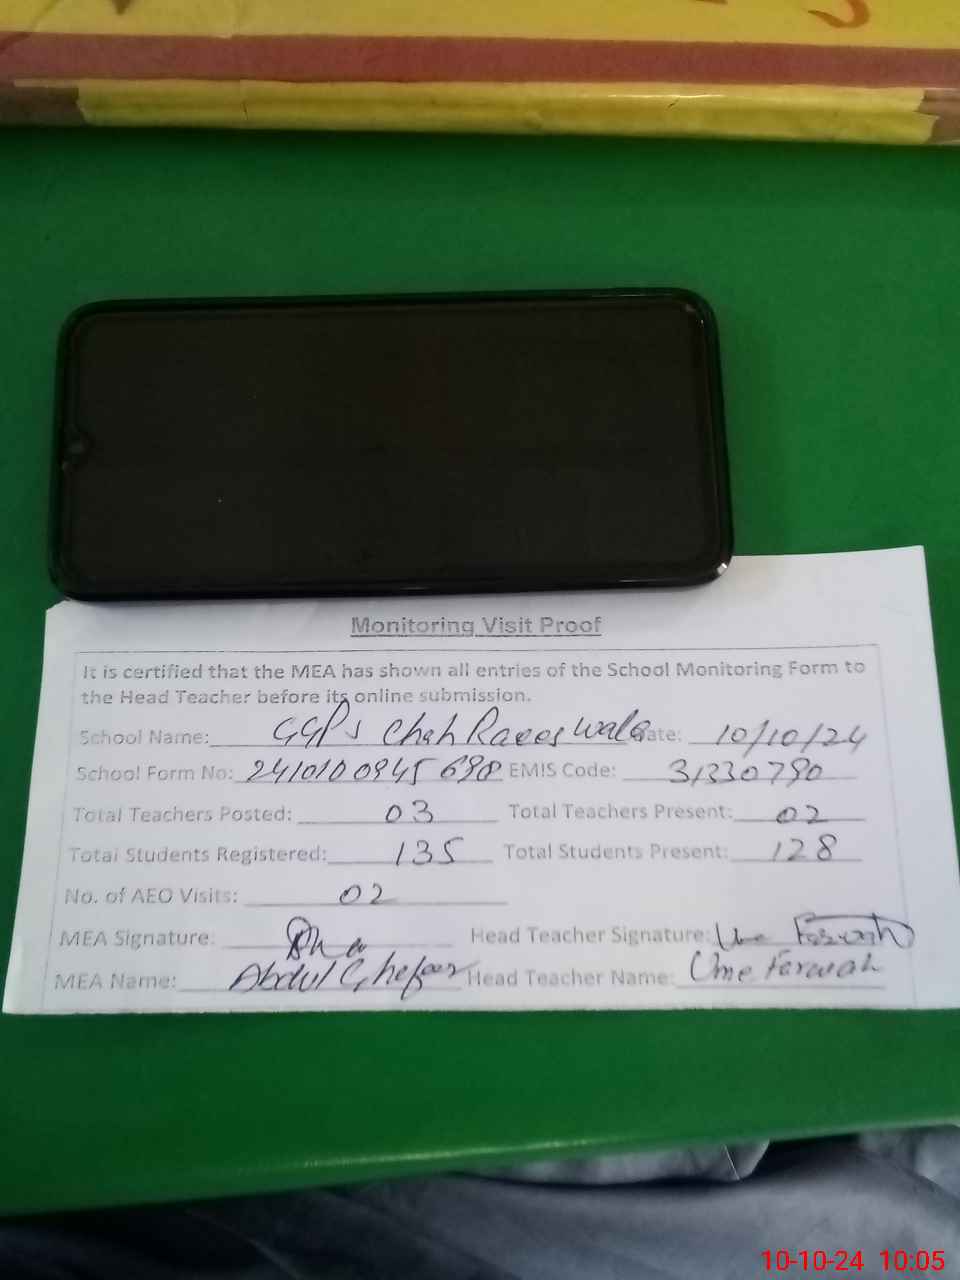 Monitoring Visit Proof
It is certified that the MEA has shown all entries of the School Monitoring Form to
the Head Teacher before its online submission.
School Name: GGPS Chah Raees Wala Date: 10/10/24
School Form No: 2410100945698 EMIS Code: 31330790
Total Teachers Posted: 03 Total Teachers Present: 02
Total Students Registered: 135 Total Students Present: 128
No. of AEO Visits: 02
MEA Signature: Head Teacher Signature: Ume Farwah
MEA Name: Abdul Ghafoor Head Teacher Name: Ume Farwah
10-10-24 10:05